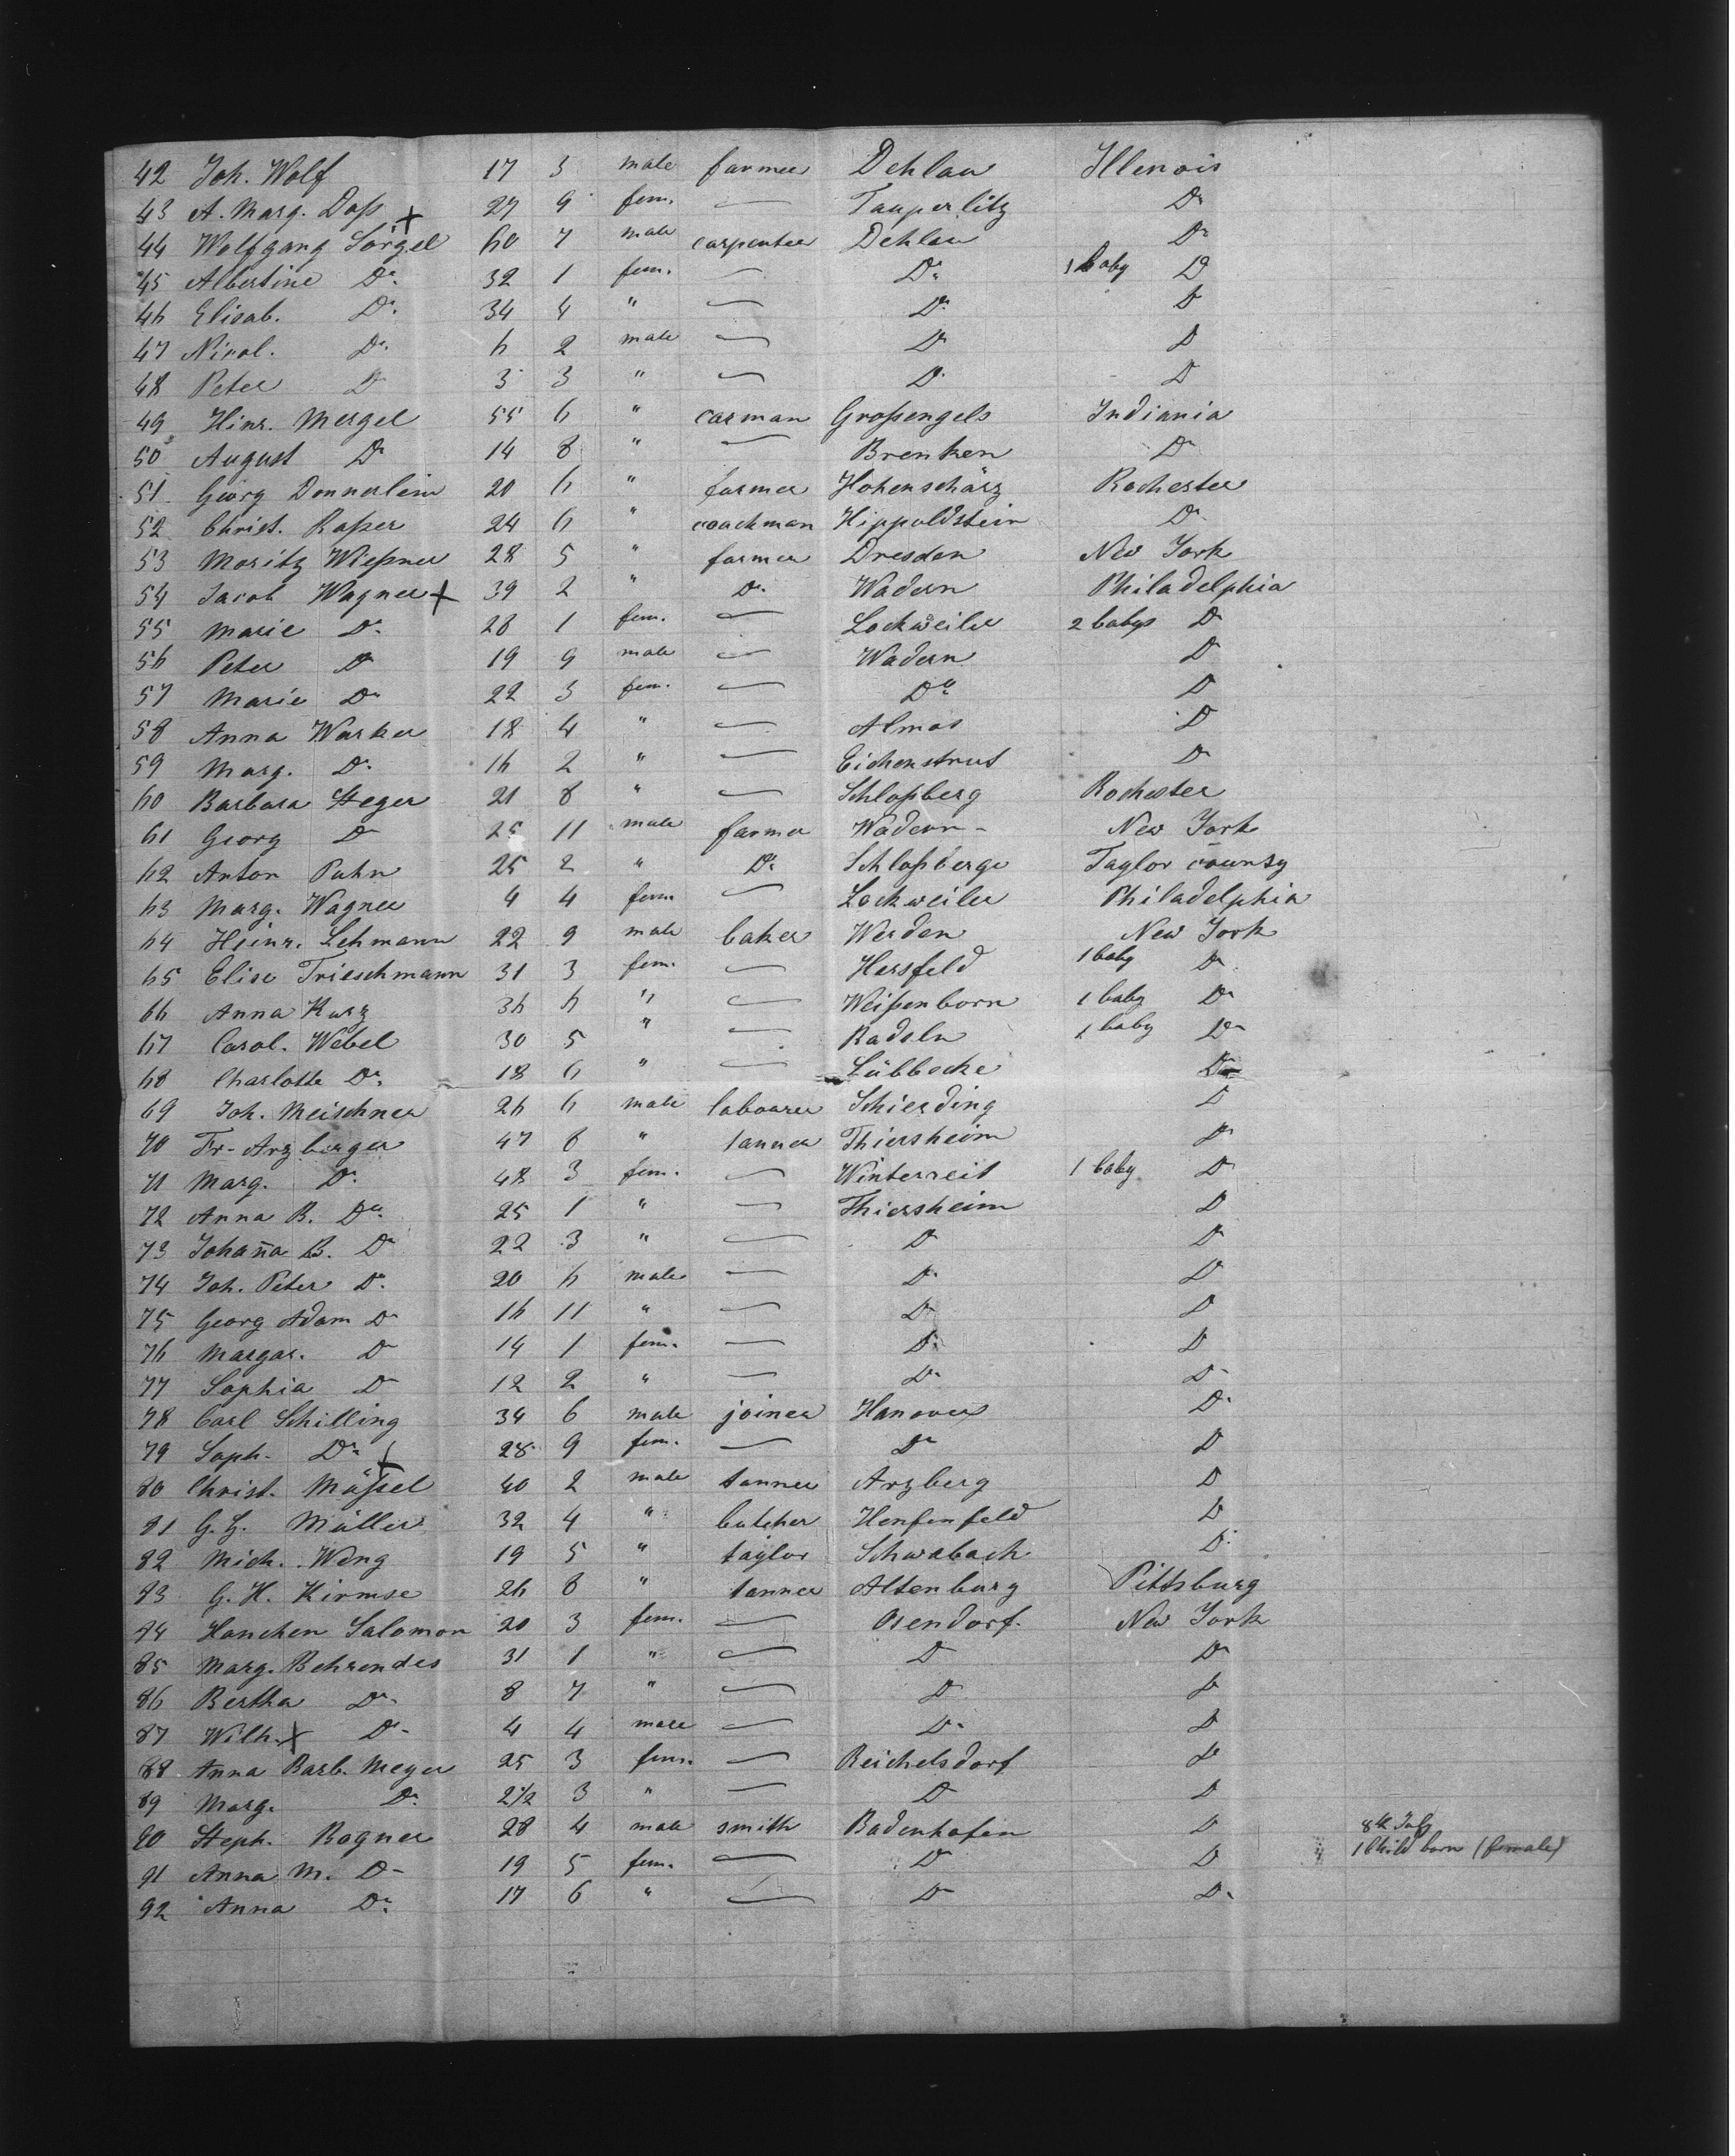 42 Joh. Wolf 17 3 male farmer Dehlau Illenois
43 A. Marg. Doß 27 9 fem. — Tauperlitz Do
44 Wolfgang Sörgel 60 7 male carpenter Dehlau Do
45 Albertine Do. 32 1 fem. — Do. 1 baby D
46 Elisab. Do. 34 4 " — Do. D
47 Nicol. Do. 6 2 male — Do D
48 Peter D 3 3 " — D. D
49 Hinr. Mergel 55 6 " carman Großengels Indiania
50 August Do 14 8 " — Brenken Do
51 Georg Donnerlein 20 6 " farmer Hohenschärz Rochester
52 Christ. Raßer 24 6 " coachman Hippoldstein Do
53 Moritz Wießner 28 5 " farmer Dresden New York
54 Jacob Wagner 39 2 " Do. Wadern Philadelphia
55 Marie Do. 28 1 fem. — Lockweiler 2 babys D
56 Peter Do 19 9 male — Wadern D
57 Marie Do 22 3 fem. — Do D
58 Anna Warker 18 4 " — Almas D
59 Marg. Do. 16 2 " — Eichenstrut Do
60 Barbara Steger 21 8 " — Schloßberg Rochester
61 Georg Do 25 11 male farmer Wadern New York
62 Anton Puhn 25 2 " Do. Schloßberge Taylor counsy
63 Marg. Wagner 4 4 fem. — Lockweiler Philadelphia
64 Heinr. Lehmann 22 9 male baker Werden New York
65 Elise Trieschmann 31 3 fem. — Hersfeld 1 baby Do
66 Anna Kurz 36 6 " — Weißenborn 1 baby Do
67 Carol. Webel 30 5 " — Radeln 1 baby Do
68 Charlotte Do. 18 6 " — Lübbecke Do
69 Joh. Meischner 26 6 male laboarer Schierding D
70 Fr. Arzberger 47 8 " tanner Thiersheim Do
71 Marg. Do. 48 3 fem. — Winterreit 1 baby D
72 Anna B. Do. 25 1 " — Thiersheim D
73 Johan̄a B. Do 22 3 " — D D
74 Joh. Peter D. 20 6 male — D. D
75 Georg Adam D 16 11 " — D D
76 Margar. D 14 1 fem. — D. D
77 Sophia D 12 2 " — D. D
78 Carl Schilling 34 6 male joiner Hanover D.
79 Soph. Do. 28 9 fem. — Do D
80 Christ. Mäßel 40 2 male tanner Arzberg D
81 G. G. Müller 32 4 " butcher Henfenfeld D
82 Mich. Weng 19 5 " taylor Schwabach D.
83 G. H. Kirmse 26 8 " tanner Altenburg Pittsburg
84 Hanchen Salomon 20 3 fem. — Osendorf. New York
85 Marg. Behrendes 31 1 " — D Do
86 Bertha Do. 8 7 " — D D
87 Wilh. Do. 4 4 male — D. D
88 Anna Barb. Meyer 25 3 fem. — Reichelsdorf D
89 Marg. Do. 2 1/2 3 " — D D
90 Steph. Rogner 28 4 male smith Badenhofen D 8th July
91 Anna M. D 19 5 fem. — D D 1 Child born (female)
92 Anna Do. 17 6 " — D D.